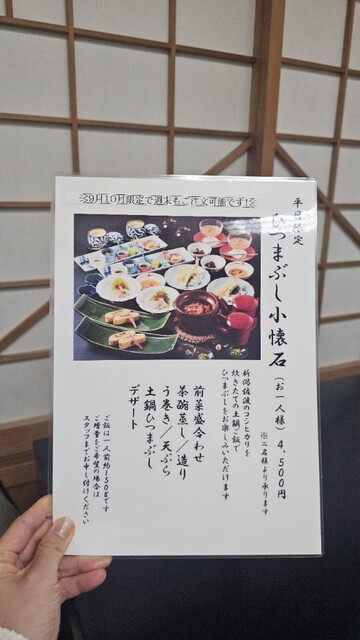 ※9月10月限定で週末もご注文可能です!※
平日限定
ひつまぶし小懐石(お一人様)4,500円
※二名様より承ります
新潟佐渡のコシヒカリを
炊きたての土鍋ご飯で
ひつまぶしをお楽しみいただけます
前菜盛合わせ
茶碗蒸し/造り
う巻き/天ぷら
土鍋ひつまぶし
デザート
ご飯は一人前約150gです
ご増量をご希望の場合は
スタッフまでお申し付けください